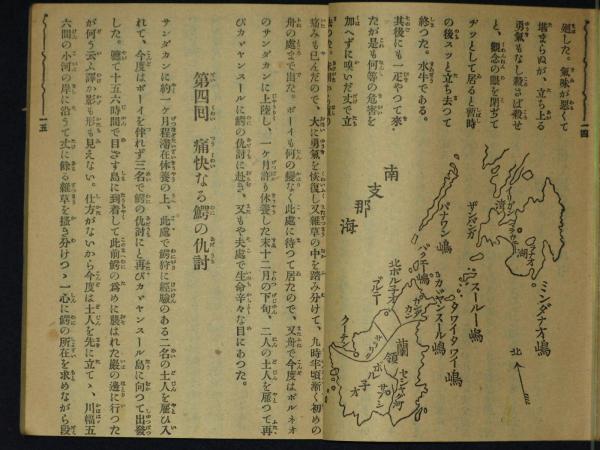 一四
廻した。氣味が惡くて
堪まらぬが、立ち上る
勇氣もなし殺さば殺せ
と、觀念の眼を閉ぢて
ヂッとして居ると暫時
の後スッと立ち去つて
終つた。水牛である。
其後にも一疋やつて來
たが是も何等の危害を
加へずに嗅いだ丈で立
南支那海
ミンダナオ嶋
スールー嶋
タワイタワイ嶋
カガヤンスール嶋
パナワン嶋
ザンバンガ
北ボルネオ
サンダカン
クーチン
蘭領ボルネオ
北
痛みも已んだので、大に勇氣を恢復し又雜草の中を踏み分けて、九時半頃漸く初めの
舟の處まで出た。ボーイも何の變なく此處に待つて居たので、又舟で今度はボルネオ
のサンダカンに上陸し、一ケ月許り休養した末十二月の下旬、二人の土人を雇つて再
びカガヤンスールに鰐の仇討に赴き、又もや夫處で生命辛々な目にあつた。
第四回 痛快なる鰐の仇討
サンダカンに約一ケ月程滯在休養の上、此處で鰐狩に經驗のある二名の土人を雇ひ入
れて、今度はボーイを伴れず三名で鰐の仇討にと再びカガヤンスール島に向つて出發
した。軈て十五六時間で目ざす島に到着して此前鰐の爲めに襲はれた巖の邊に行つた
が何う云ふ譯か影も形も見えない。仕方がないから今度は土人を先に立てゝ、川幅五
六間の小河の岸に沿うて丈に餘る雜草を搔き分けつゝ一心に鰐の所在を求めながら段
一五